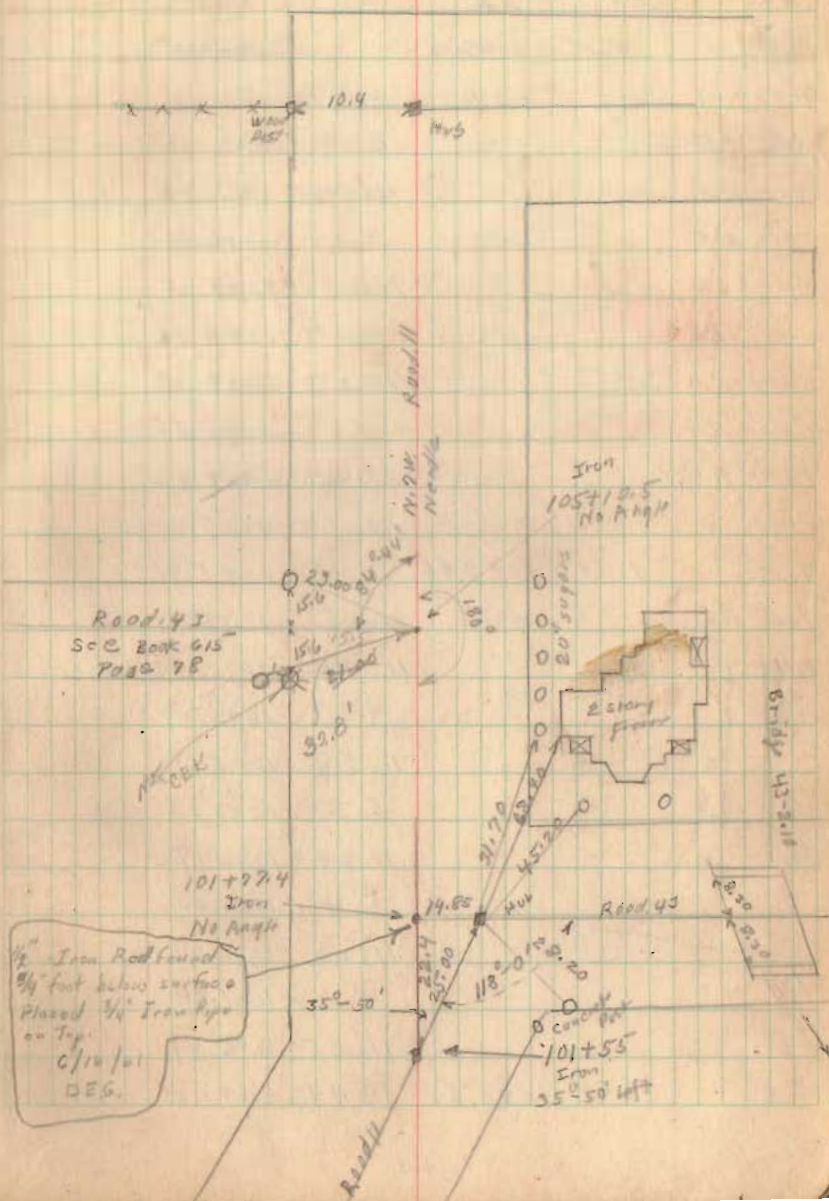 10.4
Wood
Post
Hub
Road.11
N.2W.
Needle
Iron
105+10.5
No Angle
23.00
84°
180°
15.6
15.6
Road.43
See Book 615
Page 78
32.8'
CEK
20" sugars
2 story
Frame
Bridge 43-5.11
31.70
63.80
45.20
101+77.4
Iron
No Angle
14.85
Hub
Road.43
22.4
25.00
118°
28.20
35°-50'
Concrete
Post
101+55
Iron
35°-50' Left
1/2" Iron Rod found
3/4 foot below surface
Placed 3/4" Iron Pipe
on Top.
DEG.
Road 11